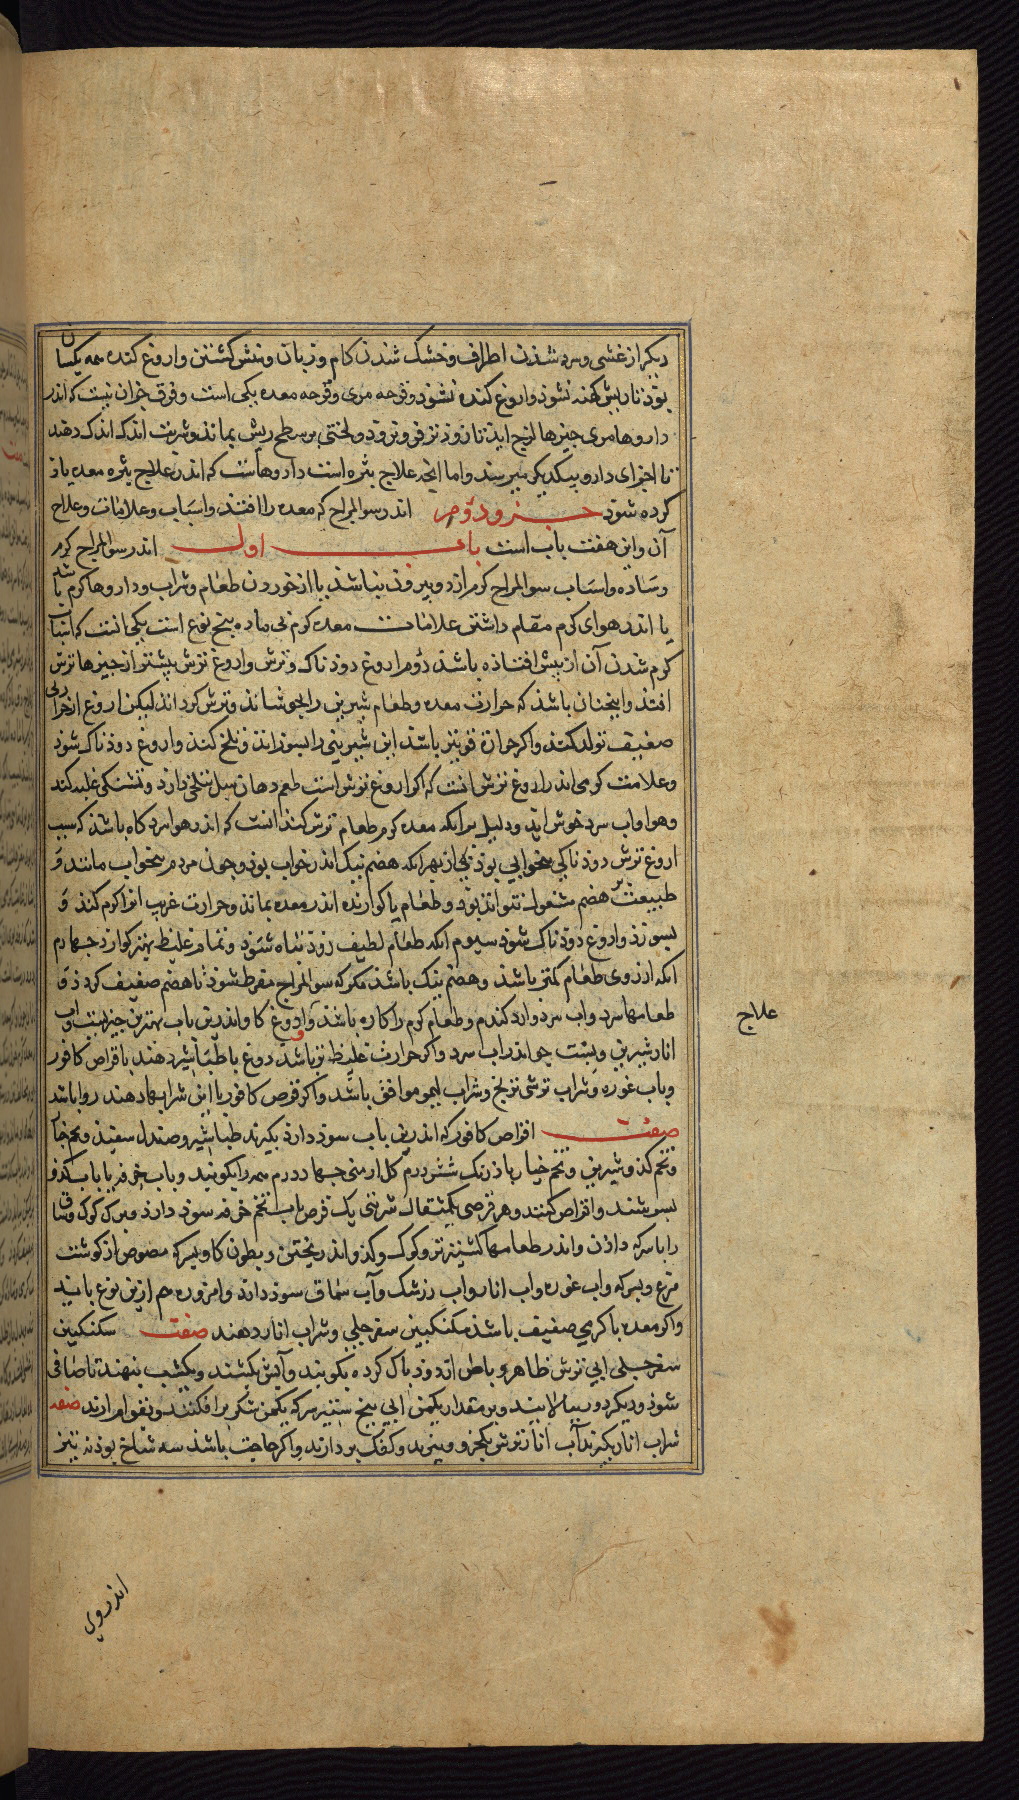 دیکر از غشی و سرد شدن اطراف و خشک شدن کام و زبان و تنش کشتن و اروغ کنده همه یکسان
بوذ تا ریش کهنه نشوذ و اروغ کنده نشوذ و قرحه مری و قرحه معده یکی است و فرق جزان نیست که اندر
داروهاء مری جیزها لزج ایذ تا زوذ تر فرو نروذ و لختی بر سطح ریش بماند و شربت اندک اندک دهند
تا اجزای دارو بیکدیکر میرسند و اما انجه علاج بثره است داروهاست که اندر علاج بثره معده یاذ
کرده شوذ جزو دوم اندر سوالمزاج که معده را افتد و اسباب و علامات و علاج
آن و این هفت باب است باب اول اندر سوالمزاج کرم
و ساده و اسباب سوالمزاج کرم از دو بیرون نباشد یا از خوردن طعام و شراب و داروها کرم باشد
یا اندر هوای کرم مقام داشتن علامات معده کرم بی ماده بنج نوع است یکی انست که اسباب
کرم شدن آن از بیش افتاذه باشد دوم اروغ دوذناک و ترش و اروغ ترش بیشتر از جیزها ترش
افتد و اینجنان باشد که حرارت معده و طعام شیرین را بجوشاند و ترش کرداند لیکن اروغ از حرارتی
ضعیف تولد کند و اکر حرارة قوی تر باشد این شیرینی را بسوزاند و تلخ کند و اروغ دوذناک شوذ
و علامت کرمی اندر اروغ ترش انست که اکر اروغ ترش است طعم دهان میل بتلخی دارد و تشنکی غلبه کند
و هوا و اب سرد خوش اید و دلیل برانکه معده کرم طعام ترش کند انست که اندر هواء سرد کاه باشد که سبب
اروغ ترش دوذناکی بیخوابی بوذ بی از بهر انکه هضم نیک اندر خواب بوذ و جون مردم بیخواب مانند و
طبیعت بر هضم مشغول نتواند بوذ و طعام ناکوارنده اندر معده بماند و حرارت غریب انرا کرم کند و
بسوزذ و اروغ دوذناک شوذ سیوم انکه طعام لطیف زوذ تباه شوذ و تمام غلیظ بهتر کوارد جهارم
انکه ارزوی طعام کمتر باشد و هضم نیک باشد مکر که سوالمزاج مفرط شوذ تا هضم ضعیف کردذ و
طعامها سرد و اب سرد و ارد کندم و طعام کرم را کاره باشد و اروغ کا و اندرین باب بهترین جیزهست و اب
انار شیرین و بست جو اندر اب سرد و اکر حرارت غلیظ تر باشد دوغ با طباشیر دهند با قراص کافور
و باب غوره و شراب ترشی ترنج و شراب لیمو موافق باشد و اکر قرص کافور با این شرابها دهند روا باشد
صفت اقراص کافور که اندرین باب سوذ دارذ بکیرند طباشیر و صندل سفید و تخم خیار
و تخم کدو شیرین و تخم خیار باذرنک شش درم کل ارمنی جهار درم همه را بکوبند و باب خرفه یا باب کدو
بسرشند و اقراص کنند و هر قرصی یکمثقال شربتی یک قرص باب تخم خرفه سوذ دارذ و برک کوک و ساق
را با سرکه داذن و اندر طعامها کشنیز تر و کوک و کدو اندر یختن و بطون کاو بسرکه مصوص از کوشت
مرغ و بسرکه و اب غوره و اب انار و اب زرشک و آب سماق سوذ دارد و امزوره هم ازین نوع باید
و اکر معده با کرمی ضعیف باشد سکنکبین سفرجلی و شراب انار دهند صفت سکنکبین
سفرجلی ابی ترش ظاهر و باطن از دوذ پاک کرده بکوبند و آبش بکشند و یکشب بنهند تا صافی
شوذ و دیکر روز ببالایند و بر مقدار یکمن ابی بنج ستیر سرکه یکمن شکر برافکنند و بقوام ارند صفت
شراب انار بکیرند آب انار ترش یکجزو و ببزند و کفک بردارند و اکر حاجت باشد سه شاخ بوذنه نیز
علاج
اندروی